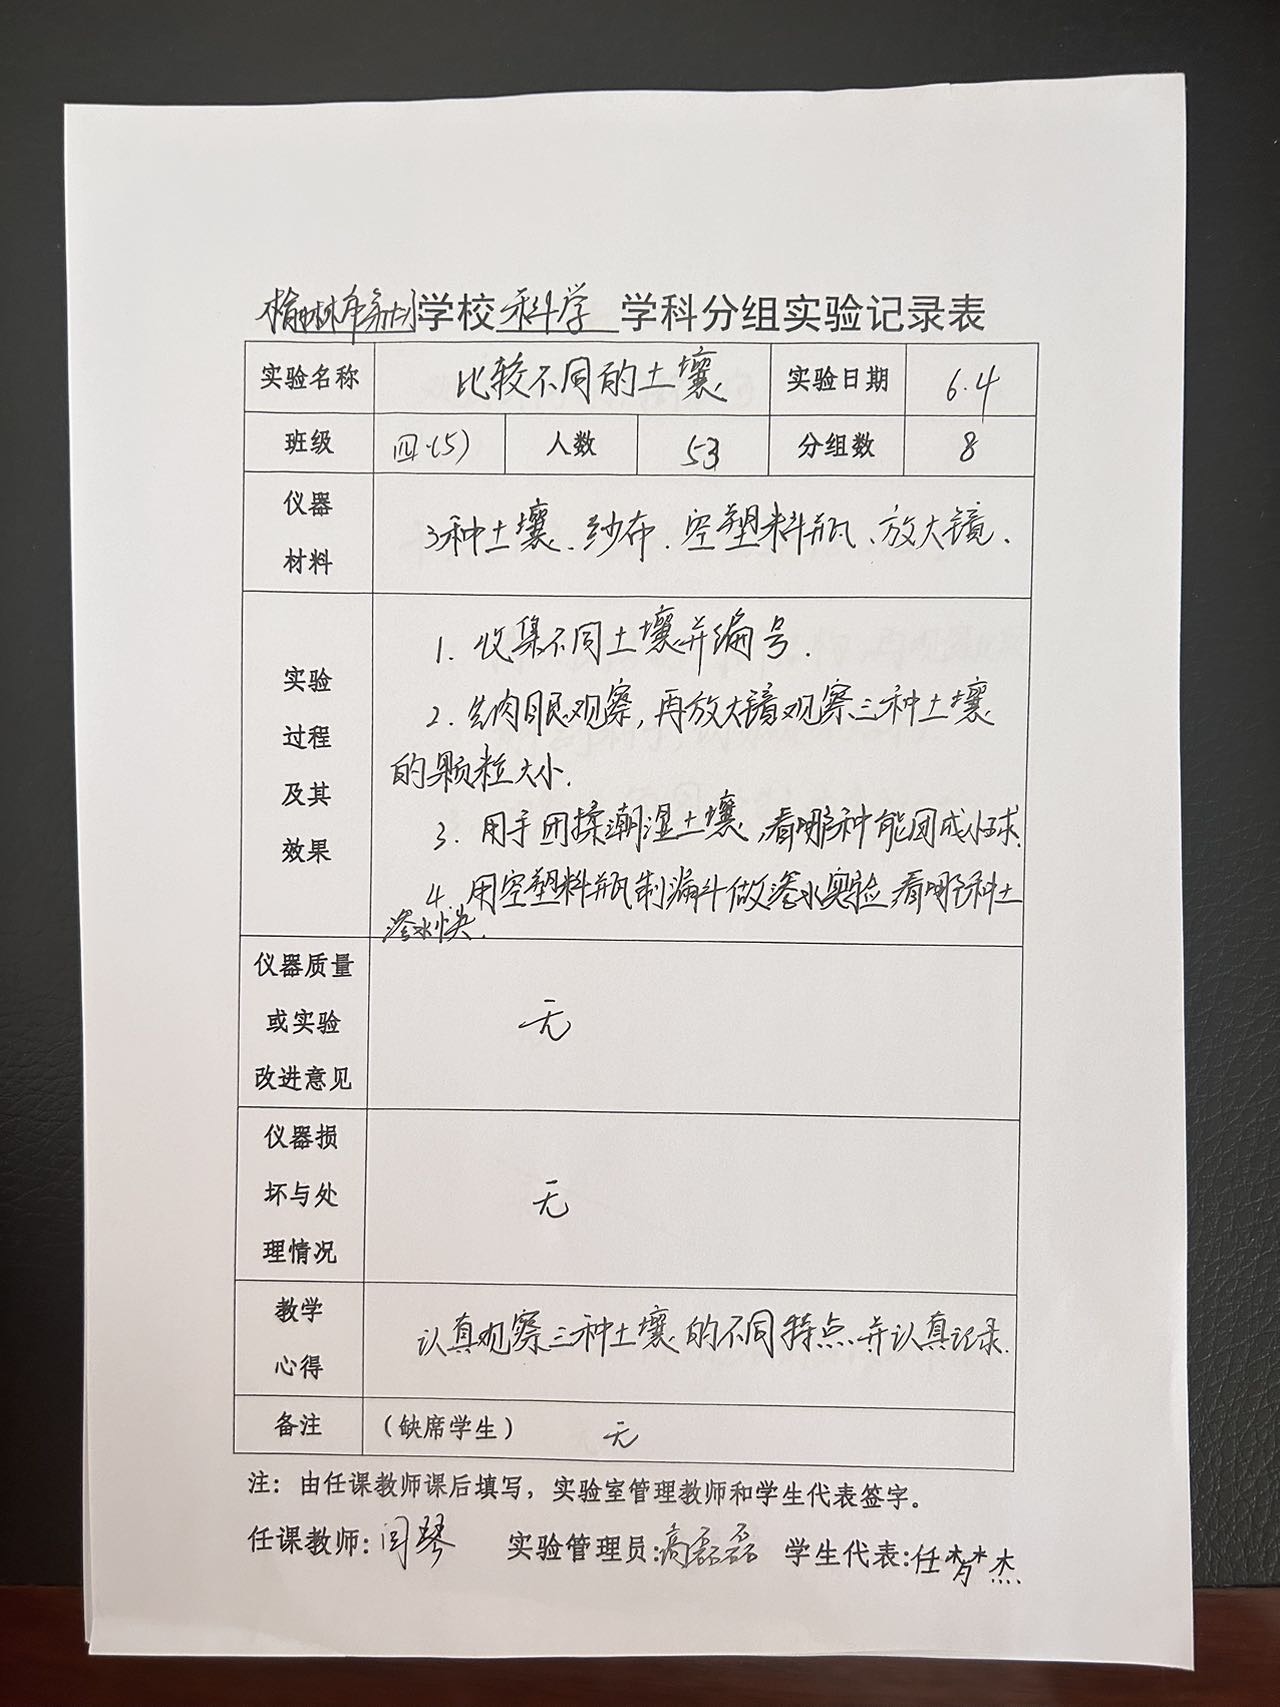 榆林市 学校 科学 学科分组实验记录表
实验名称 比较不同的土壤 实验日期 6.4
班级 四(5) 人数 53 分组数 8
仪器材料 3种土壤、纱布、空塑料瓶、放大镜、
实验过程及其效果
1. 收集不同土壤并编号.
2. 先肉眼观察,再放大镜观察三种土壤
的颗粒大小.
3. 用手团揉潮湿土壤,看哪种能团成小球.
4. 用空塑料瓶制漏斗做渗水实验,看哪种土
渗水快.
仪器质量或实验改进意见 无
仪器损坏与处理情况 无
教学心得 认真观察三种土壤的不同特点,并认真记录.
备注 (缺席学生) 无
注:由任课教师课后填写,实验室管理教师和学生代表签字。
任课教师:闫琴 实验管理员:高磊磊 学生代表:任 杰